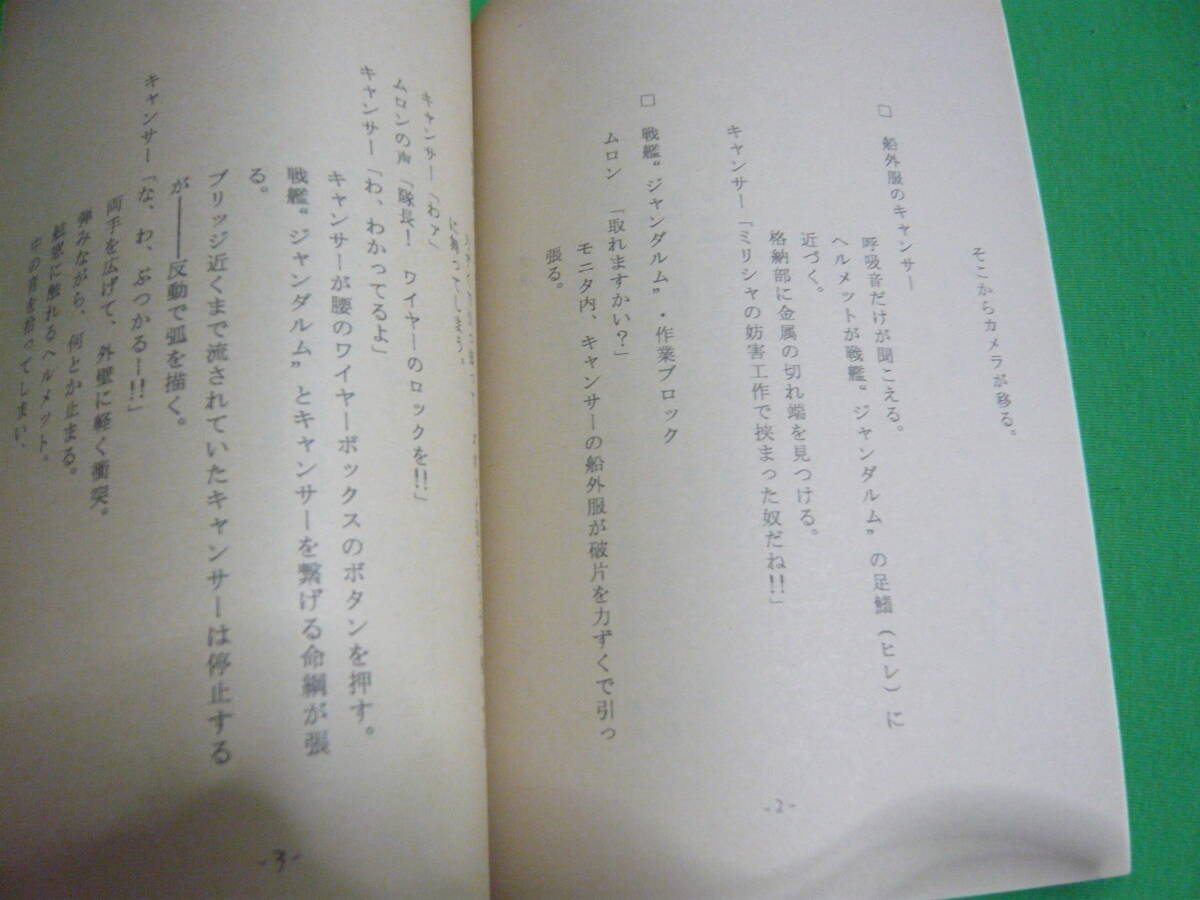 そこからカメラが移る。
□　船外服のキャンサー
呼吸音だけが聞こえる。
ヘルメットが戦艦“ジャンダルム”の足鰭(ヒレ)に
近づく。
格納部に金属の切れ端を見つける。
キャンサー「ミリシャの妨害工作で挟まった奴だね!!」
□　戦艦“ジャンダルム”・作業ブロック
ムロン　「取れますかい？」
モニタ内、キャンサーの船外服が破片を力ずくで引っ
張る。
-2-
に舞ってしまう。
キャンサー「わァ」
ムロンの声「隊長！　ワイヤーのロックを!!」
キャンサー「わ、わかってるよ」
キャンサーが腰のワイヤーボックスのボタンを押す。
戦艦“ジャンダルム”とキャンサーを繋げる命綱が張
る。
ブリッジ近くまで流されていたキャンサーは停止する
が――反動で弧を描く。
キャンサー「な、わ、ぶつかるー!!」
両手を広げて、外壁に軽く衝突。
弾みながら、何とか止まる。
魅惑に触れるヘルメット。
中の音を拾ってしまい、
-3-